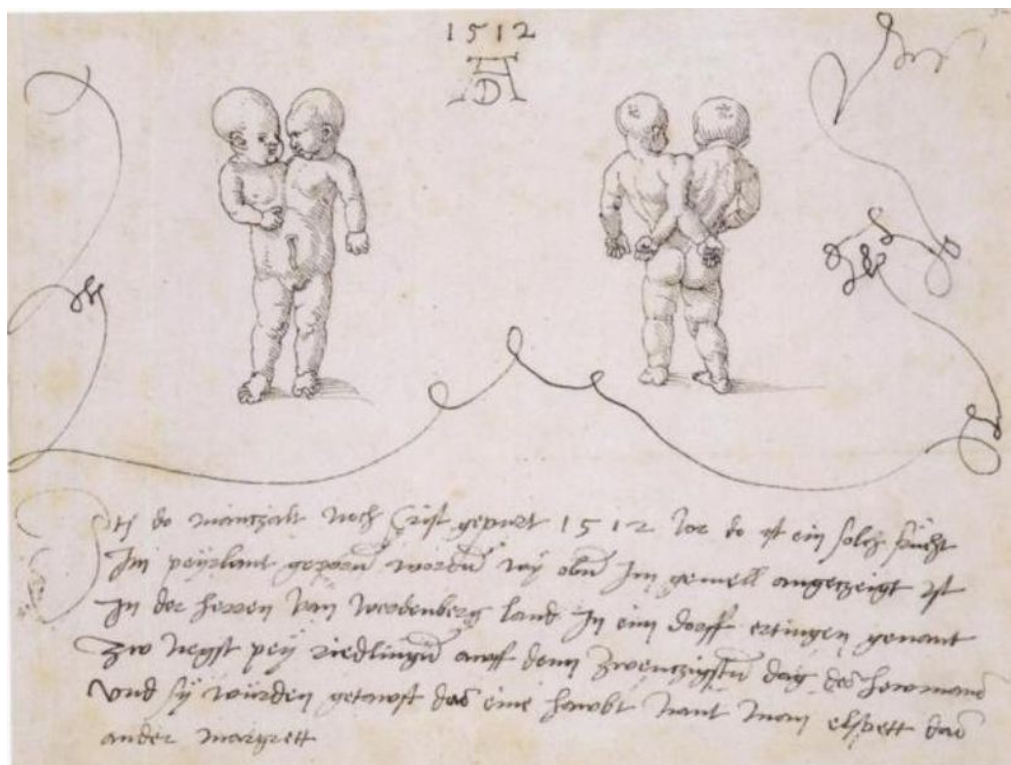 1512
AD
Itz do man tzalt noch Crist gepurt 1512 Jor do ist ein solch frücht
Im peyrlant geporn wordn wy obn Im gemell angetzeigt ist
In der herren van werdenberg land In eim dorff ertingen genant
zw negst pey riedlingn awff denn zwentzigstn dag des hewmans
vnd sy würden getawft das eine hawbt nant man elspett das
ander margrett